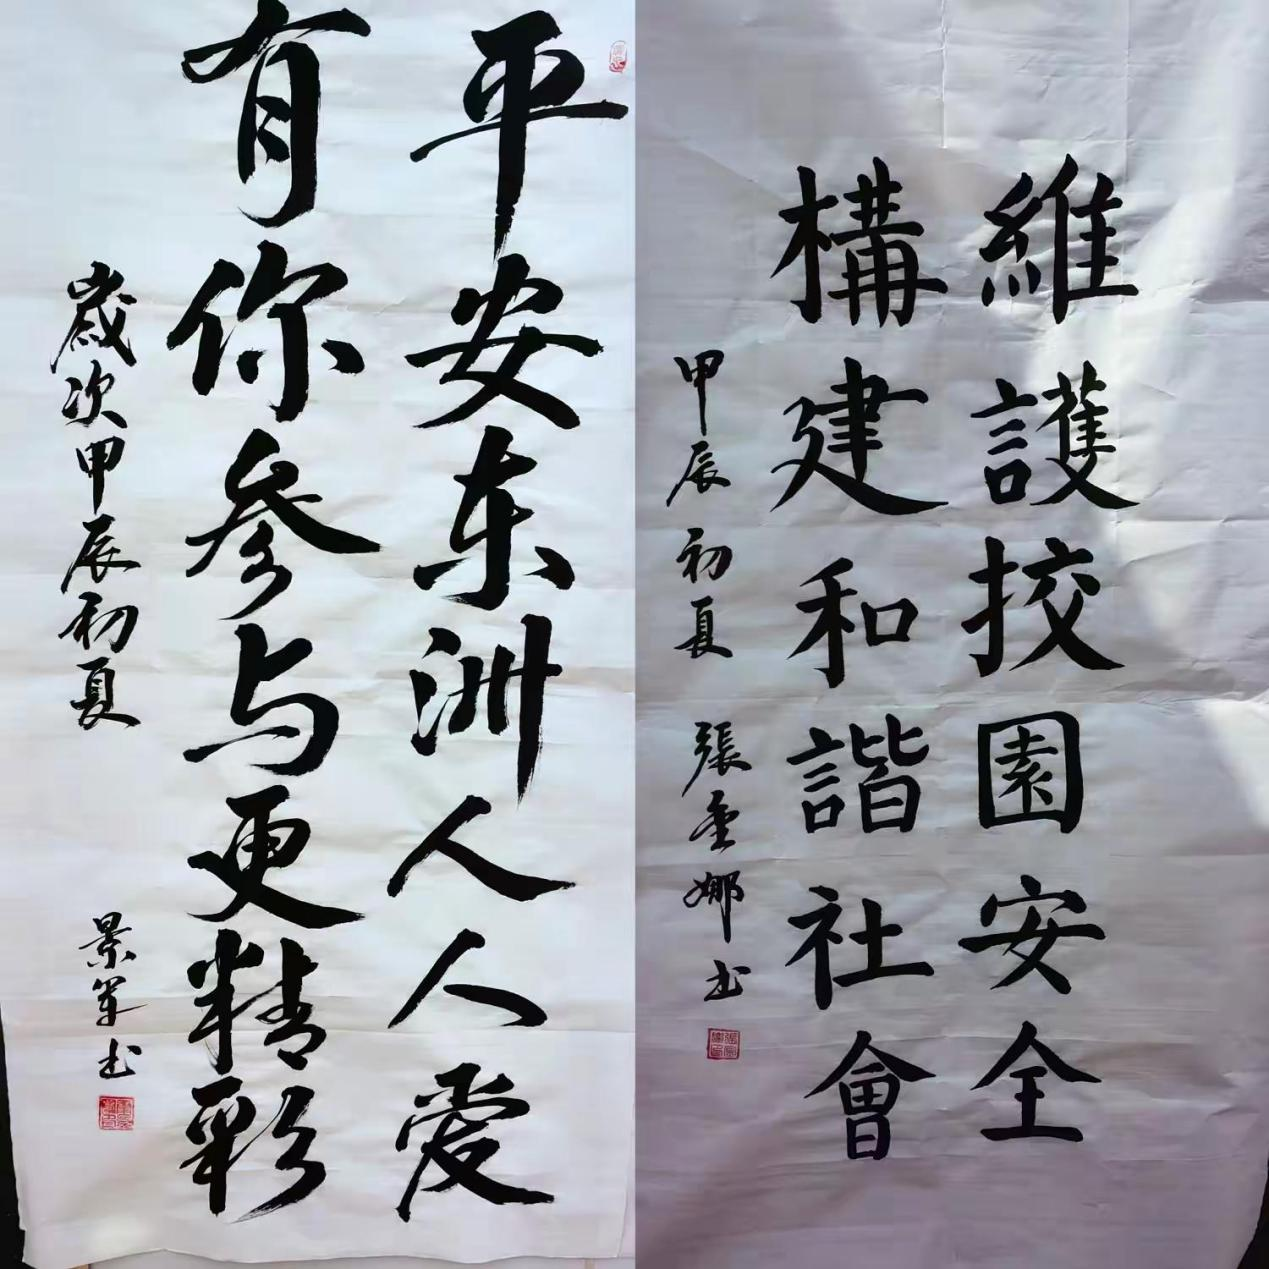 平安东洲人人爱
有你参与更精彩
歲次甲辰初夏
景军书
維護挍園安全
構建和諧社會
甲辰初夏
張金娜书